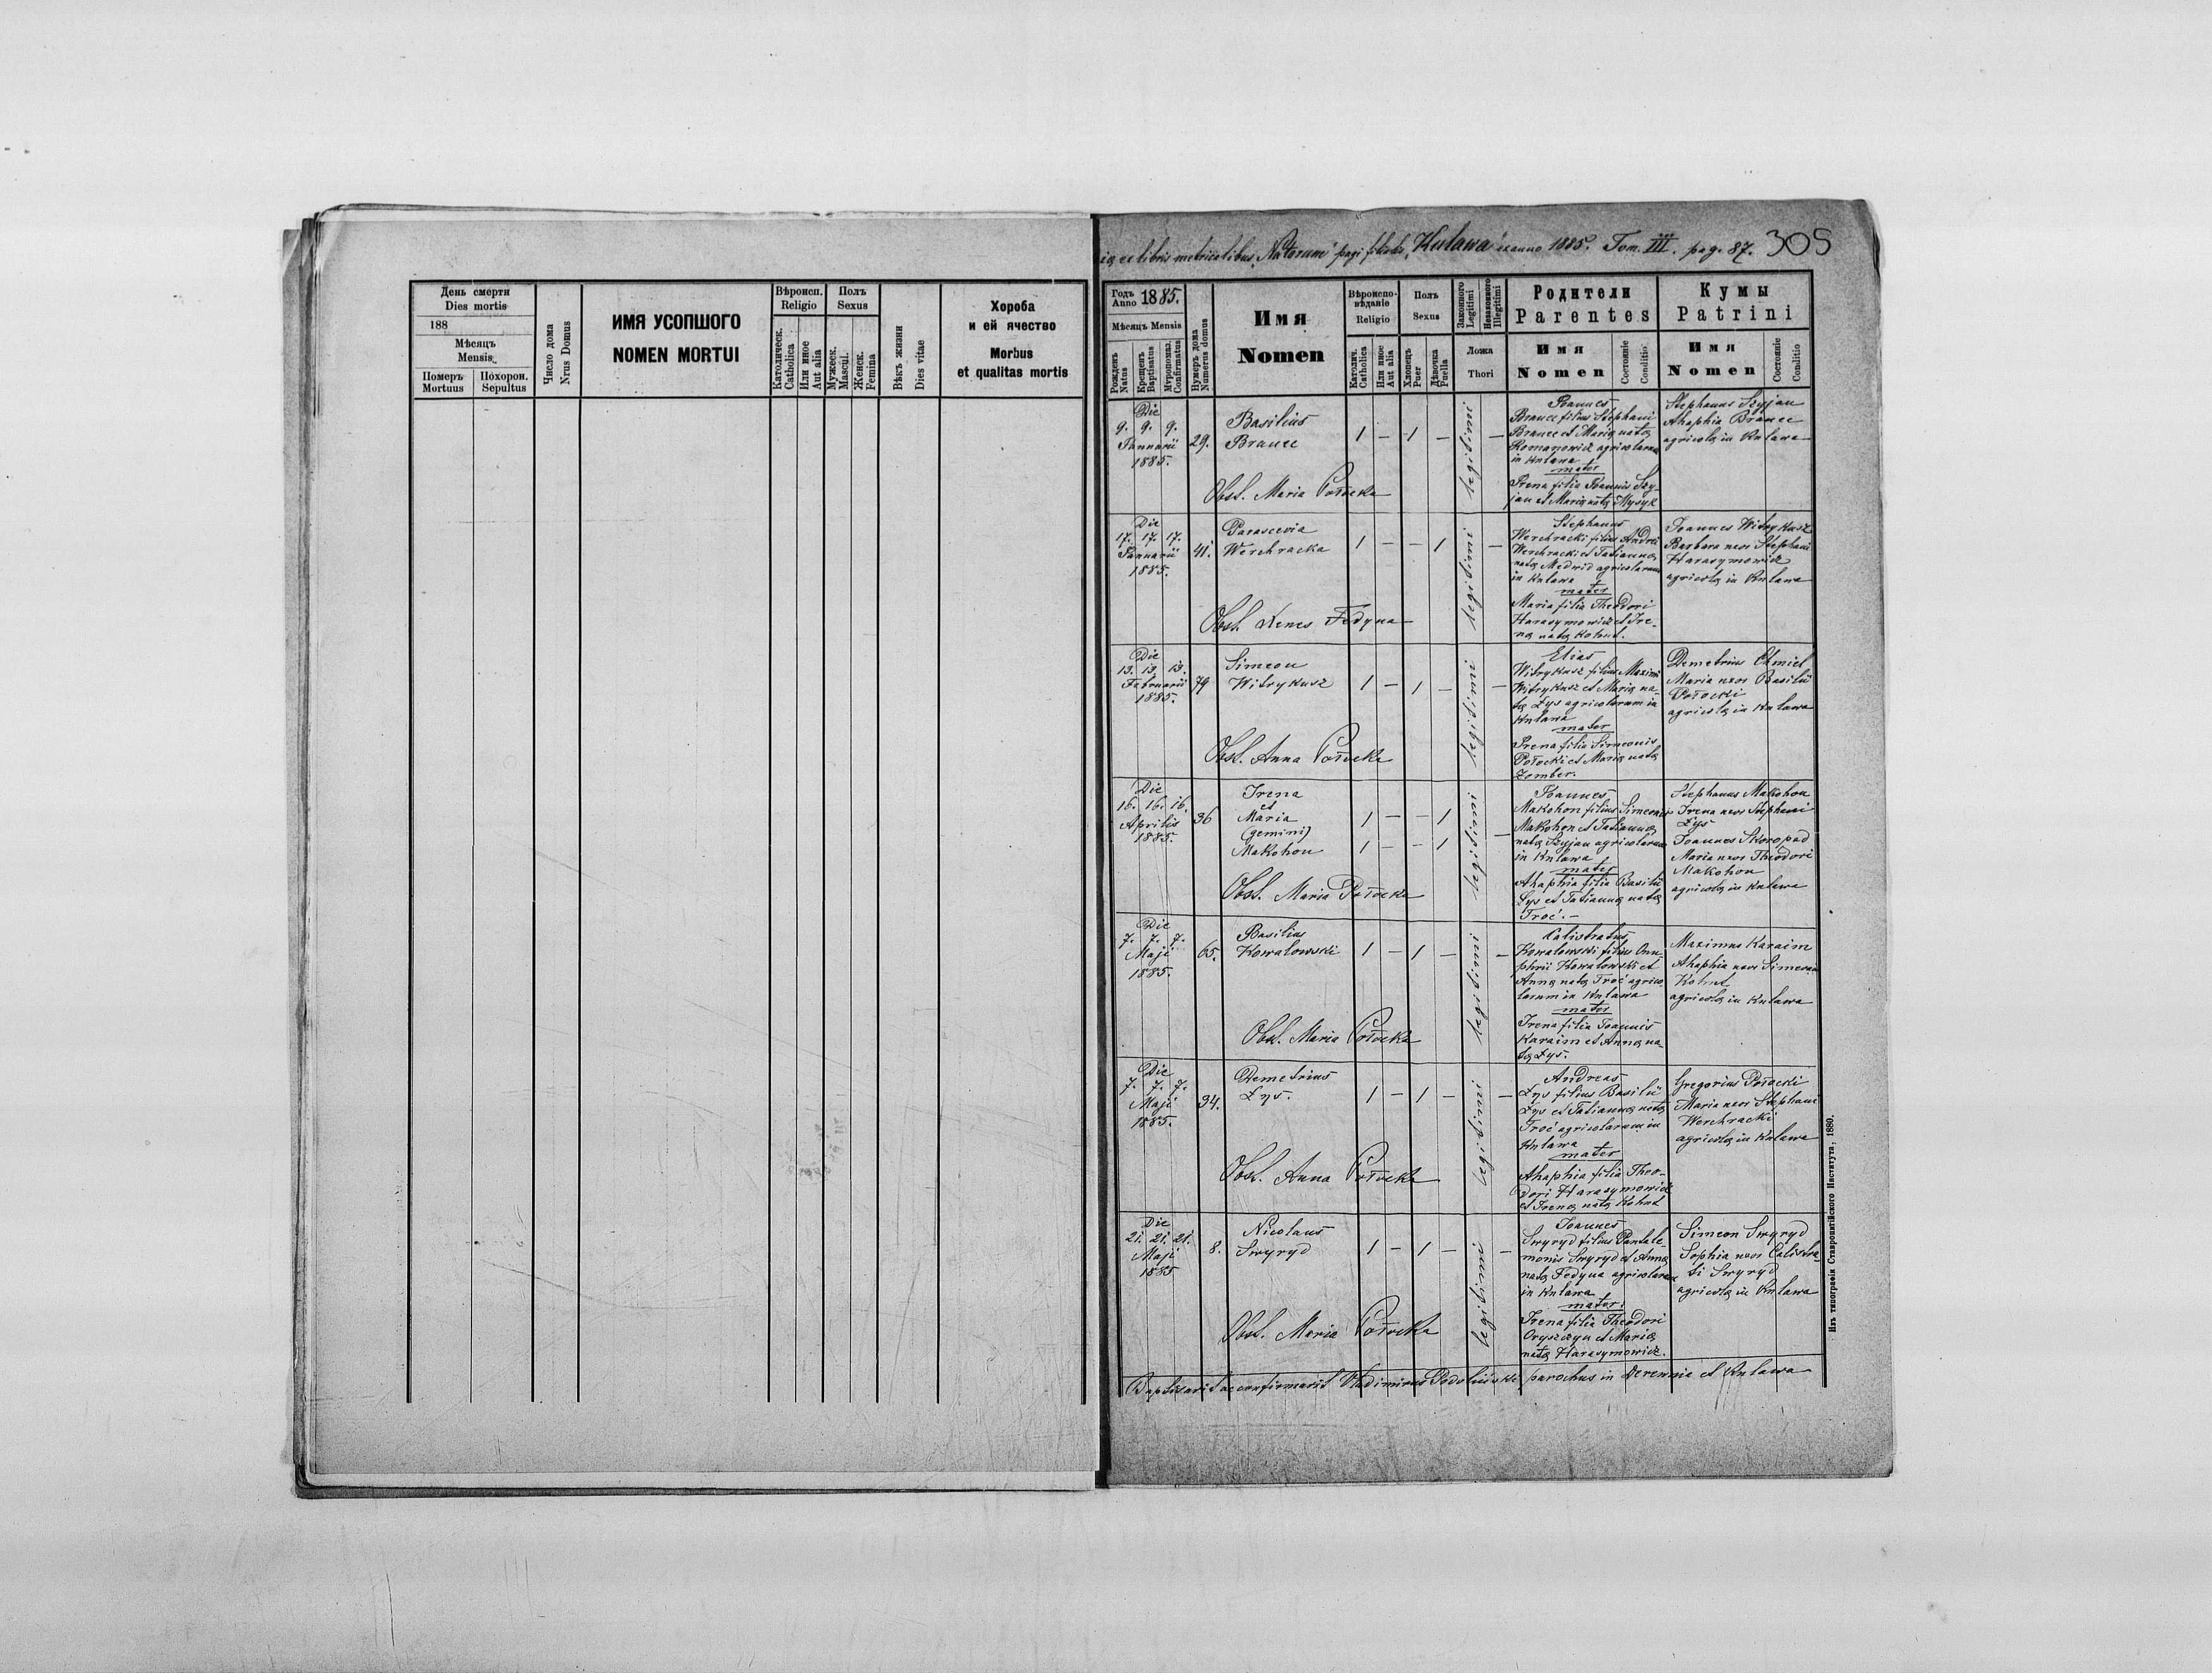 День смерти
Dies mortis
188
Мѣсяцъ
Mensis
Померъ
Mortuus
Похорон.
Sepultus
Число дома
Nrus Domus
ИМЯ УСОПШОГО
NOMEN MORTUI
Вѣроисп.
Religio
Католическ.
Catholica
Или иное
Aut alia
Полъ
Sexus
Мужеск.
Mascul.
Женск.
Femina
Вѣкъ жизни
Dies vitae
Хороба
и ей ячество
Morbus
et qualitas mortis
ex libris metricalibus "Natorum" pagi filialis "Kulawa" ex anno 1885. Tom. III. pag. 87. 305
Годъ
Anno 1885.
Мѣсяцъ Mensis
Рожденъ
Natus
Крещенъ
Baptisatus
Мѵропомаз.
Confirmatus
Нумеръ дома
Numerus domus
Имя
Nomen
Вѣроиспо-
вѣданіе
Religio
Католич.
Catholica
Или иное
Aut alia
Полъ
Sexus
Хлопецъ
Puer
Дѣвочка
Puella
Законного
Legitimi
Незаконного
Illegitimi
Ложа
Thori
Родители
Parentes
Имя
Nomen
Состояніе
Conditio
Кумы
Patrini
Имя
Nomen
Состояніе
Conditio
Die
9. 9. 9.
Januarii
1885.
29.
Basilius
Brauec
1 – 1 –
legitimi
–
Joannes
Brauec filius Stephani
Brauec et Mariæ natæ
Romanowicz agricolarum
in Kulawa
mater
Irena filia Joannis Szy-
jan et Mariæ natæ Mysyk
Stephanus Szyjan
Ahaphia Brauec
agricolæ in Kulawa
Obst. Maria Potocka
Die
17. 17. 17.
Januarii
1885.
41.
Parascevia
Werchracka
1 – – 1
legitimi
–
Stephanus
Werchracki filius Andreæ
Werchracki et Tatiannæ
natæ Medwid agricolarum
in Kulawa
mater
Maria filia Theodori
Harasymowicz et Ire-
næ natæ Kohut.
Joannes Witrykusz
Barbara uxor Stephani
Harasymowicz
agricolæ in Kulawa
Obst. Xenes Fedyna
Die
13. 13. 13.
Februarii
1885.
79
Simeon
Witrykusz
1 – 1 –
legitimi
–
Elias
Witrykusz filius Maximi
Witrykusz et Mariæ na-
tæ Łys agricolarum in
Kulawa
mater
Irena filia Simeonis
Potocki et Mariæ natæ
Zomber.
Demetrius Chmiel
Maria uxor Basilii
Potocki
agricolæ in Kulawa
Obst. Anna Potocka
Die
16. 16. 16.
Aprilis
1885.
36
Irena
et
Maria
(gemini)
Makohon
1 – – 1
1 – – 1
legitimi
–
Joannes
Makohon filius Simeonis
Makohon et Tatiannæ
natæ Szyjan agricolarum
in Kulawa
mater
Ahaphia filia Basilii
Łys et Tatiannæ natæ
Troć. –
Stephanus Makohon
Irena uxor Stephani
Łys
Joannes Skoropad
Maria uxor Theodori
Makohon
agricolæ in Kulawa
Obst. Maria Potocka
Die
7. 7. 7.
Maji
1885.
65.
Basilius
Kowalowski
1 – 1 –
legitimi
–
Calistratus
Kowalowski filius Onu-
phrii Kowalowski et
Annæ natæ Troć agrico
larum in Kulawa
mater
Irena filia Joannis
Karaim et Annæ na
tæ Łys.
Maximus Karaim
Ahaphia uxor Simeonis
Kohut
agricolæ in Kulawa
Obst. Maria Potocka
Die
7. 7. 7.
Maji
1885.
34.
Demetrius
Łys.
1 – 1 –
legitimi
–
Andreas
Łys filius Basilii
Łys et Tatiannæ natæ
Troć agricolarum in
Kulawa
mater
Ahaphia filia Theo-
dori Harasymowicz
et Irenæ natæ Kohut
Gregorius Potocki
Maria uxor Stephani
Werchracki
agricolæ in Kulawa
Obst. Anna Potocka
Die
21. 21. 21.
Maji
1885
8.
Nicolaus
Swyryd
1 – 1 –
legitimi
–
Joannes
Swyryd filius Pantale-
monis Swyryd et Annæ
natæ Fedyna agricolarum
in Kulawa
mater:
Irena filia Theodori
Oryszczyn et Mariæ
natæ Harasymowicz.
Simeon Swyryd
Sophia uxor Calistra
ti Swyryd
agricolæ in Kulawa
Obst. Maria Potocka
Baptisavit ac confirmavit Vladimirus Podoliński, parochus in Derewnia et Kulawa
Изъ типографіи Ставропигійского Института, 1880.